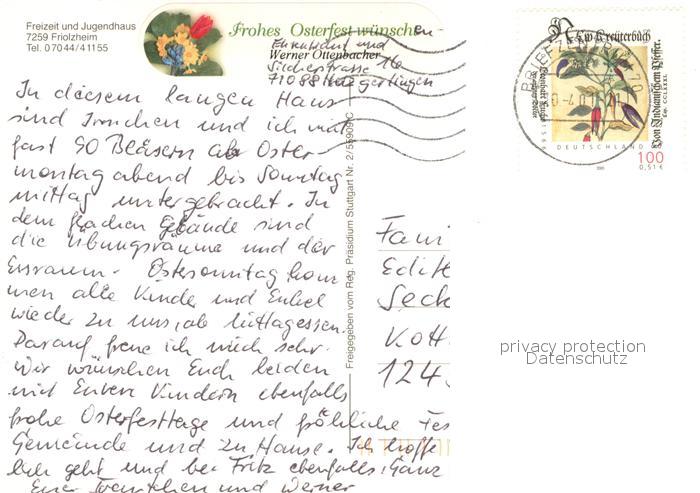 Freizeit und Jugendhaus
7259 Friolzheim
Tel. 0 70 44 / 4 11 55
Frohes Osterfest wünschen
und
Werner Ottenbacher
Silcherstrasse 16
71088 Holzgerlingen
In diesem langen Haus
sind und ich mit
fast 90 Bläsern ab Oster-
montag abend bis Sonntag
mittag untergebracht. In
dem flachen Gebäude sind
die Übungsräume und der
Essraum. Ostersonntag kom
men alle Kinder und Enkel
wieder zu uns, ab Mittagessen.
Darauf freue ich mich sehr.
Wir wünschen Euch beiden
mit Euren Kindern ebenfalls
frohe Osterfesttage und fröhliche Fes
Gemeinde und zu Hause. Ich hoffe
geht und bei Fritz ebenfalls. Ganz
Eure und Werner
Freigegeben vom Reg. Präsidium Stuttgart Nr. 2/
Fami
Edith
Seck
Kott
124
Kreuterbuch
Von Indianischem Pfeffer.
Cap. CCLXXXI.
DEUTSCHLAND
100
0,51 €
BRIEFZENTRUM 70
privacy protection
Datenschutz